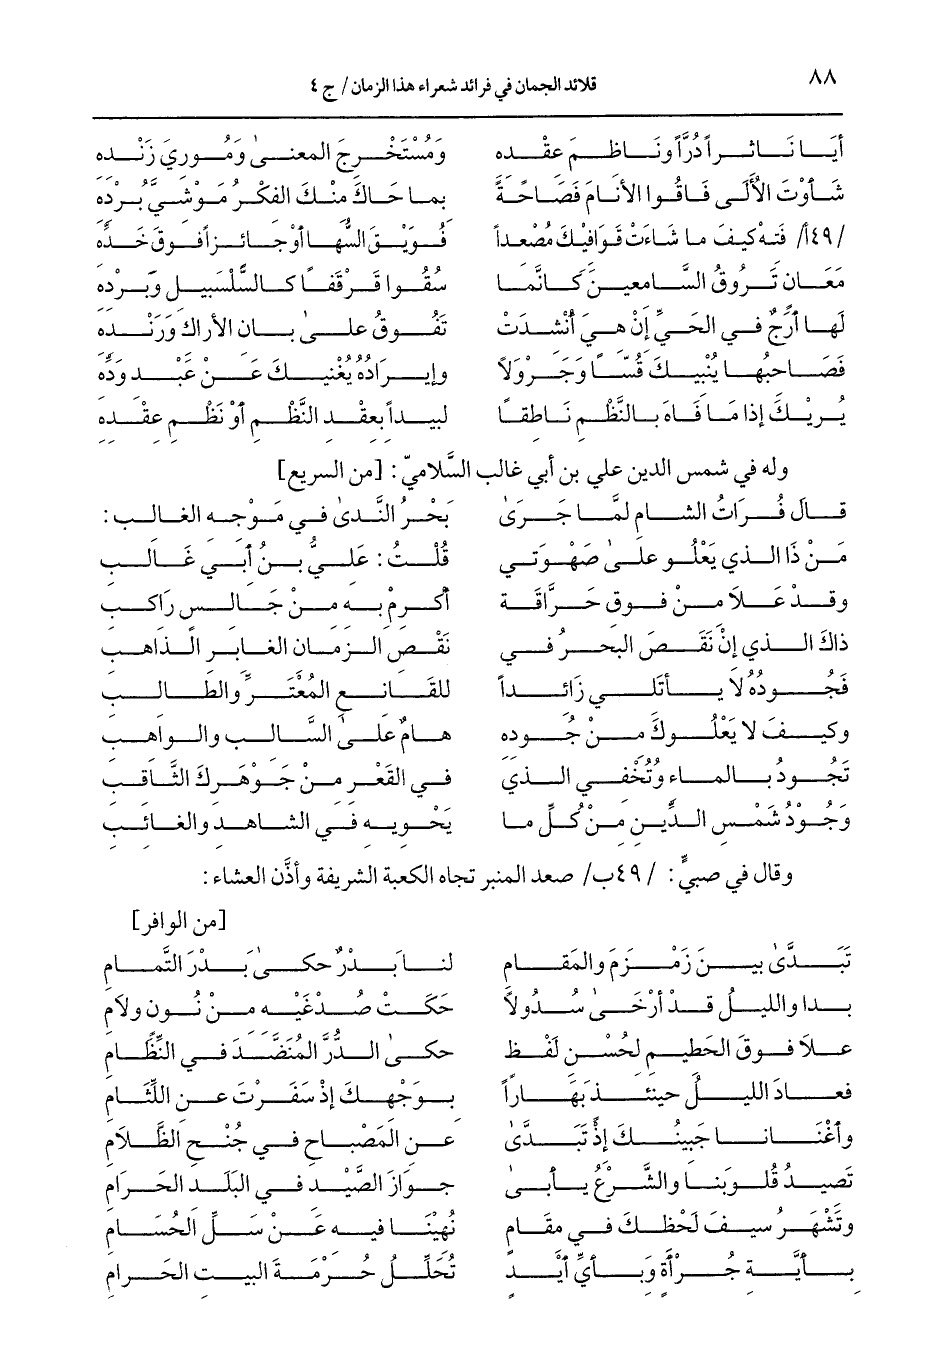 ٨٨ قلائد الجمان في فرائد شعراء هذا الزمان / ج ٤
أيَا نَاثراً دُرَّاً وَنَاظمَ عقْده وَمُسْتَخْرجَ المعنىٰ وَمُوري زَنْده
شَأَوْتَ الأُلَى فَاقُوا الأنَامَ فَصَاحَةً بمَا حَاكَ منْكَ الفكْرُ مَوْشيَّ بُرْده
/٤٩أ/ فَتهْ كَيفَ ما شَاءَت قَوَافيكَ مُصْعداً فُوَيْقَ السُّهَا أوْ جَائزاً فوقَ خَدِّه
مَعَان تَرُوقُ السَّامعينَ كَأنَّما سُقُوا قَرْقَفاً كَالسَّلْسَبيل وَبَرْده
لَهَا أرَجٌ في الحَيِّ إنْ هيَ أُنْشدَتْ تَفُوقُ علىٰ بَان الأرَاك وَرَنْده
فَصَاحبُهَا يُنْبيكَ قُسَّاً وَجَرْوَلاً وإيْرَادُهُ يُغْنيكَ عَنْ عَبْد وَدِّه
يُريْكَ إذا مَا فَاهَ بالنَّظْم نَاطقاً لَبيْداً بعقْد النَّظْم أوْ نَظْم عقْده
وله في شمس الدين علي بن أبي غالب السَّلاميّ: [من السريع]
قَالَ فُرَاتُ الشَام لمَّا جَرَىٰ بَحْرُ النَّدىٰ في مَوْجه الغَالب:
مَنْ ذَا الذي يَعْلُو علىٰ صَهْوَتي قُلْتُ: عَليُّ بنُ أَبي غَالب
وقَدْ عَلاَ منْ فوق حَرَّاقَة أكْرمْ به منْ جَالس رَاكب
ذاكَ الذي إنْ نَقَصَ البحرُ في نَقْص الزمَان الغَابر الذاهب
فَجُودُهُ لا يَأْتَلي زَائداً للقَانع المُعْتَرِّ والطَالب
وكيفَ لا يَعْلُوكَ منْ جُوده هَامٌ علىٰ السَّالب والواهب
تَجُودُ بالماء وَتُخْفي الذي في القَعْر منْ جَوْهَركَ الثَّاقب
وَجُودُ شَمْس الدِّين منْ كُلِّ ما يَحْويه في الشاهد والغَائب
وقال في صبيٍّ: /٤٩ب/ صعد المنبر تجاه الكعبة الشريفة وأذَّن العشاء:
[من الوافر]
تَبَدَّىٰ بينَ زَمْزمَ والمَقَام لنَا بَدْرٌ حكىٰ بَدْرَ التَّمَام
بدا والليلُ قَدْ أرْخىٰ سُدُولاً حَكَتْ صُدْغَيْه منْ نُون ولام
عَلاَ فوقَ الحَطيم لحُسْن لَفْظ حكىٰ الدُّرَّ المُنَضَّدَ في النِّظَام
فعَادَ الليلُ حينئذ نَهَاراً بوَجْهكَ إذْ سَفَرْتَ عن اللِّثَام
وأغْنَانَا جَبينُكَ إذْ تَبَدَّىٰ عن المصْبَاح في جُنْح الظَّلاَم
تَصيدُ قُلوبَنا والشَّرْعُ يأبىٰ جَوازَ الصَّيْد في البَلَد الحَرَام
وَتَشْهَرُ سيفَ لَحْظكَ في مقَام نُهيْنَا فيه عَنْ سَلِّ الحُسَام
بأيَّة جُرْأة وَبأيِّ أَيْد تُحَلِّلُ حُرْمَةَ البيت الحَرام